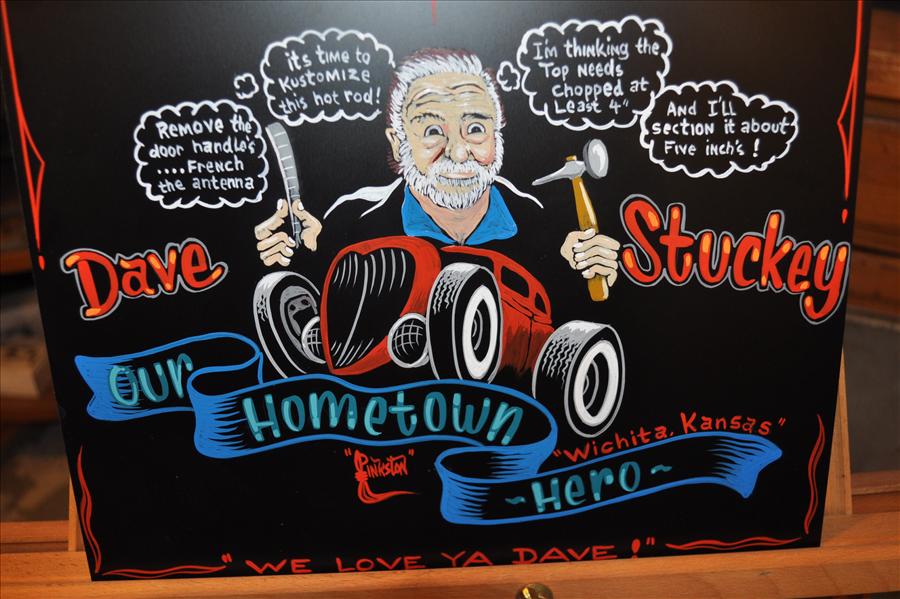 its time to
Kustomize
this hot rod!
I'm thinking the
Top Needs
chopped at
Least 4"
Remove the
door handle's
....French
the antenna
And I'll
section it about
Five inch's !
Dave
Stuckey
Our
Hometown
"Wichita, Kansas"
~Hero~
"Pinkston"
"WE LOVE YA DAVE!"